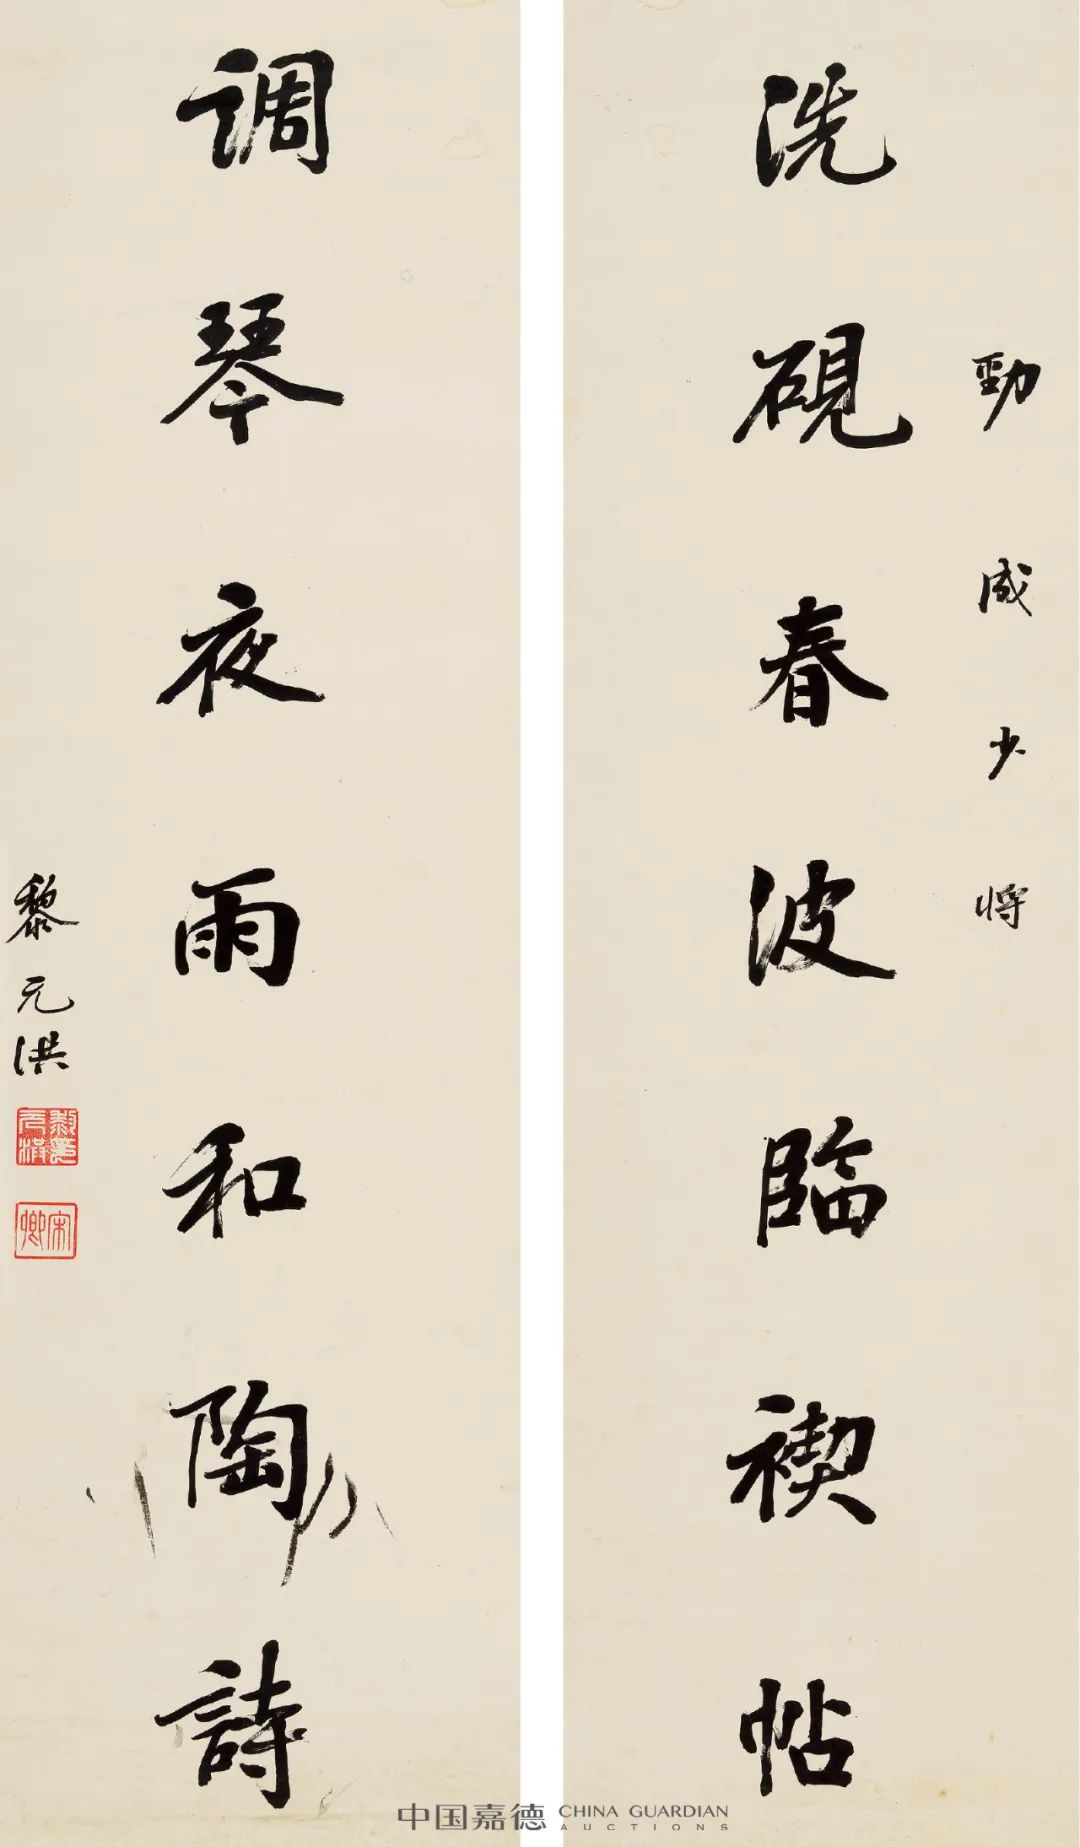 勁成少將
洗硯春波臨禊帖
調琴夜雨和陶詩
黎元洪
黎元洪
宋卿
中国嘉德 CHINA GUARDIAN
AUCTIONS